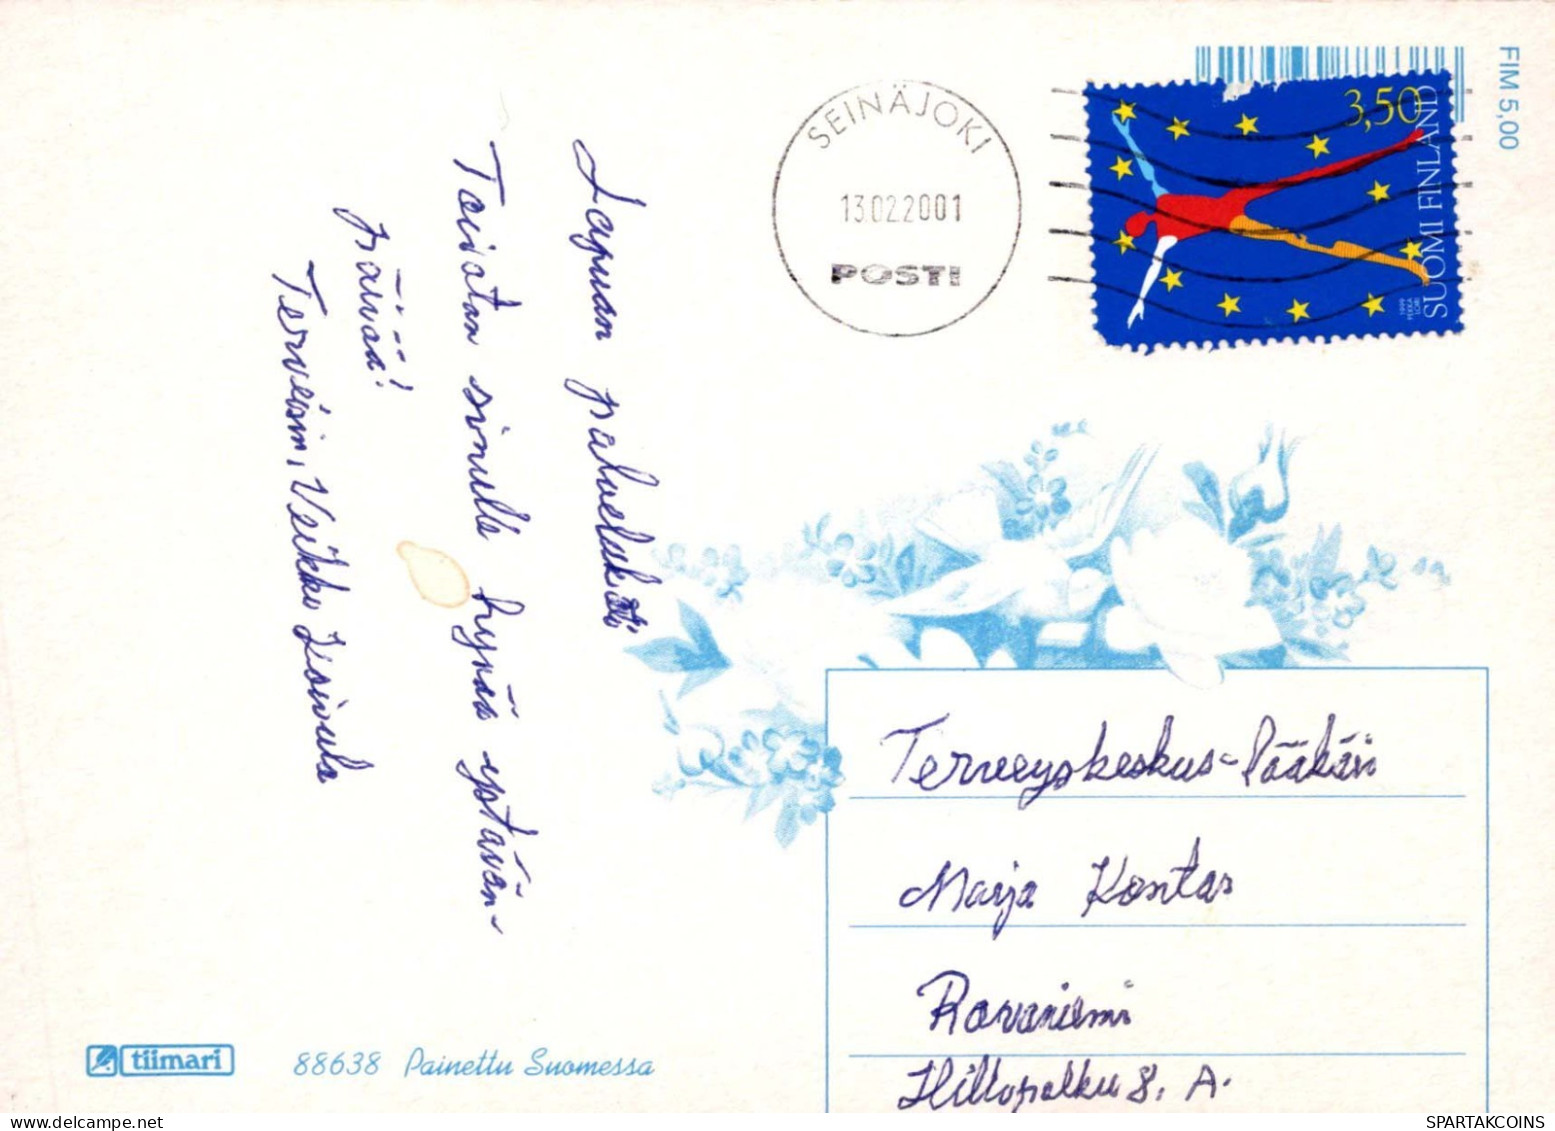 FIM 5,00
SEINÄJOKI
13.02.2001
POSTI
3,50
SUOMI FINLAND
1999
PEKKA
LOIRI
Lapuan
Toivotan sinulle hyvää ystävän-
päivää!
Terveisin, Veikko Koivula
Terveyskeskus-lääkäri
Marja Kontas
Rovaniemi
Hiltopolku 8. A.
tiimari
88638 Painettu Suomessa
SPARTAKCOINS